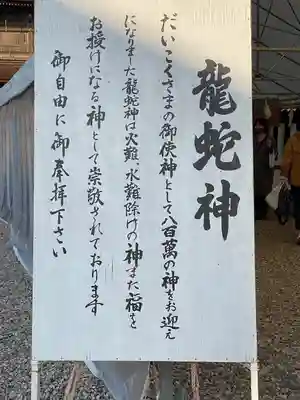 龍蛇神
だいこくさまの御使神として八百萬の神をお迎え
になりました龍蛇神は火難、水難除けの神また福を
お授けになる神として崇敬されております
御自由に御奉拝下さい